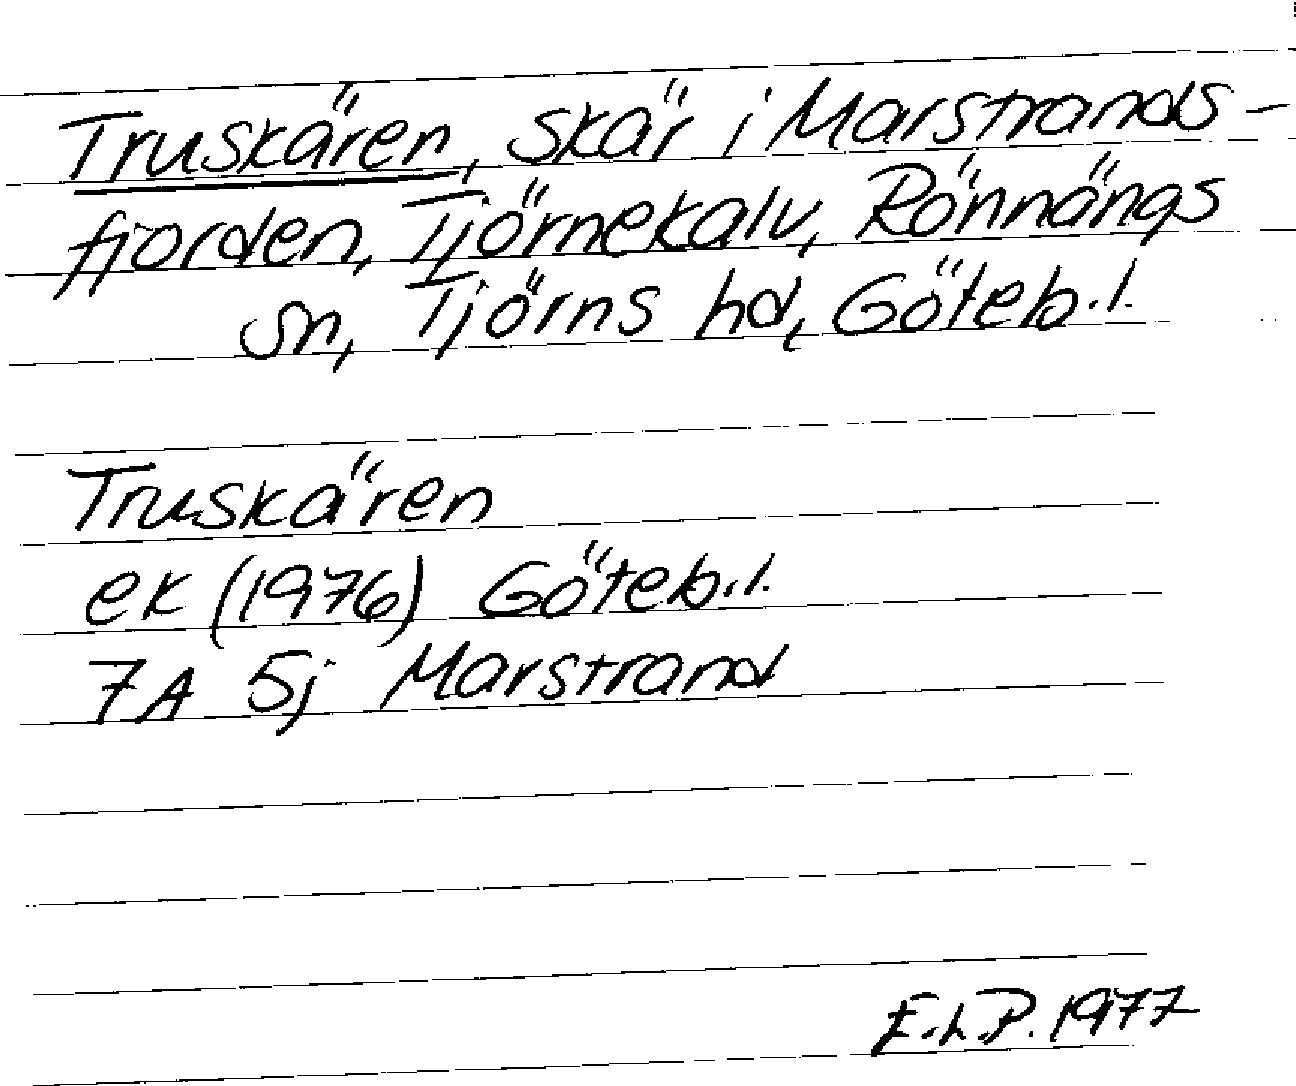 Truskären, skär i Marstrands-
fjorden, Tjörnekalv, Rönnängs
sn, Tjörns hd, Göteb.l.
Truskären
ek (1976) Göteb.l.
7A 5j Marstrand
E.L.P. 1977